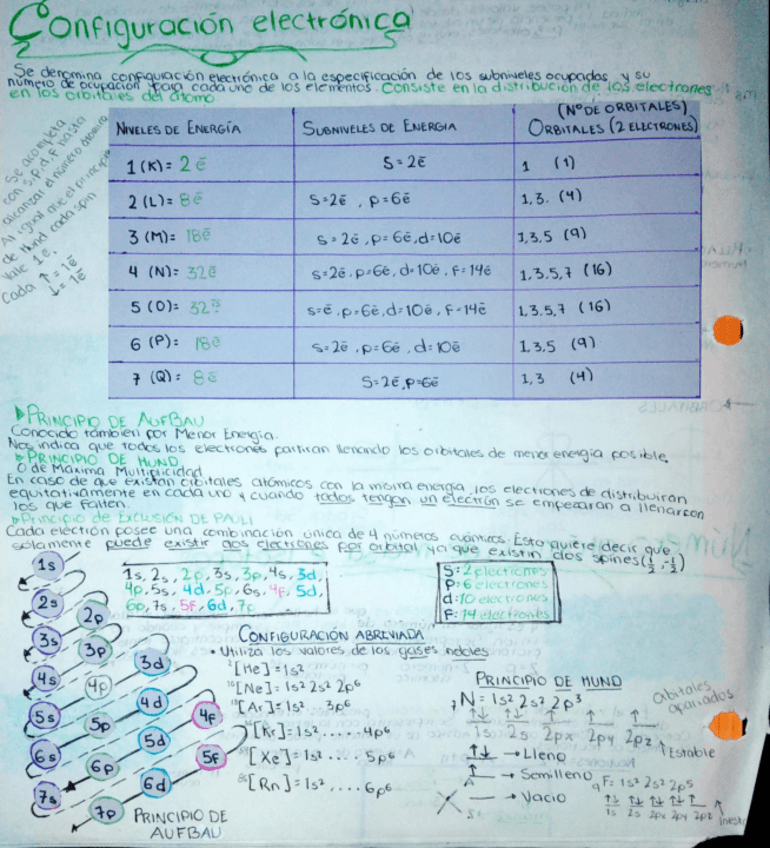 Configuración electrónica
Se denomina configuración electrónica a la especificación de los subniveles ocupados y su
número de ocupación para cada uno de los elementos. Consiste en la distribución de los electrones
en los orbitales del átomo
Se acompleta
con s,p,d,f hasta
alcanzar el número atómico
Al igual que el principio
de Hund cada spin
vale 1e.
Cada ↑=1ē
↓=1ē
NIVELES DE ENERGÍA SUBNIVELES DE ENERGIA (Nº DE ORBITALES) ORBITALES (2 ELECTRONES)
1 (K)= 2ē S=2ē 1 (1)
2 (L)= 8ē S=2ē , p=6ē 1,3. (4)
3 (M)= 18ē s=2ē, p=6ē, d=10ē 1,3,5 (9)
4 (N)= 32ē s=2ē, p=6ē, d=10ē, F=14ē 1,3,5,7 (16)
5 (O)= 32 s=ē, p=6ē, d=10ē, F=14ē 1,3,5,7 (16)
6 (P)= 18ē s=2ē, p=6ē, d=10ē 1,3,5 (9)
7 (Q)= 8ē S=2ē, p=6ē 1,3 (4)
PRINCIPIO DE AUFBAU
Conocido también por Menor Energía.
Nos indica que todos los electrones partiran llenando los orbitales de menor energía posible.
PRINCIPIO DE HUND
O de Maxima Multiplicidad
En caso de que existan orbitales atómicos con la misma energía, los electrones de distribuiran
equitativamente en cada uno y cuando todos tengan un electrón se empezaran a llenar con
los que falten.
Principio de EXCLUSIÓN DE PAULI
Cada electrón posee una combinación única de 4 números cuánticos. Esto quiere decir que
solamente puede existir dos electrones por orbital ya que existin dos spines (½, -½)
1s
2s 2p
3s 3p 3d
4s 4p 4d 4f
5s 5p 5d 5f
6s 6p 6d
7s 7p
PRINCIPIO DE
AUFBAU
1s, 2s, 2p, 3s, 3p, 4s, 3d,
4p, 5s, 4d, 5p, 6s, 4F, 5d,
6p, 7s, 5F, 6d, 7p
S: 2 electrones
P: 6 electrones
d: 10 electrones
F: 14 electrones
CONFIGURACIÓN ABREVIADA
• Utiliza los valores de los gases nobles
²[He]=1s²
¹⁰[Ne]= 1s² 2s² 2p⁶
¹⁸[Ar]=1s²... 3p⁶
[Kr]=1s²..... 4p⁶
[Xe]=1s² .... 5p⁶
⁸⁶[Rn]=1s²,.... 6p⁶
PRINCIPIO DE HUND
₇N= 1s² 2s² 2p³
↑↓ ↑↓ ↑ ↑ ↑
1s 2s 2px 2py 2pz
Orbitales
apariados
Estable
↑↓ → Lleno
↑ → Semilleno
→ Vacio
₉F= 1s² 2s² 2p⁵
↑↓ ↑↓ ↑↓ ↑↓ ↑
1s 2s 2px 2py 2pz